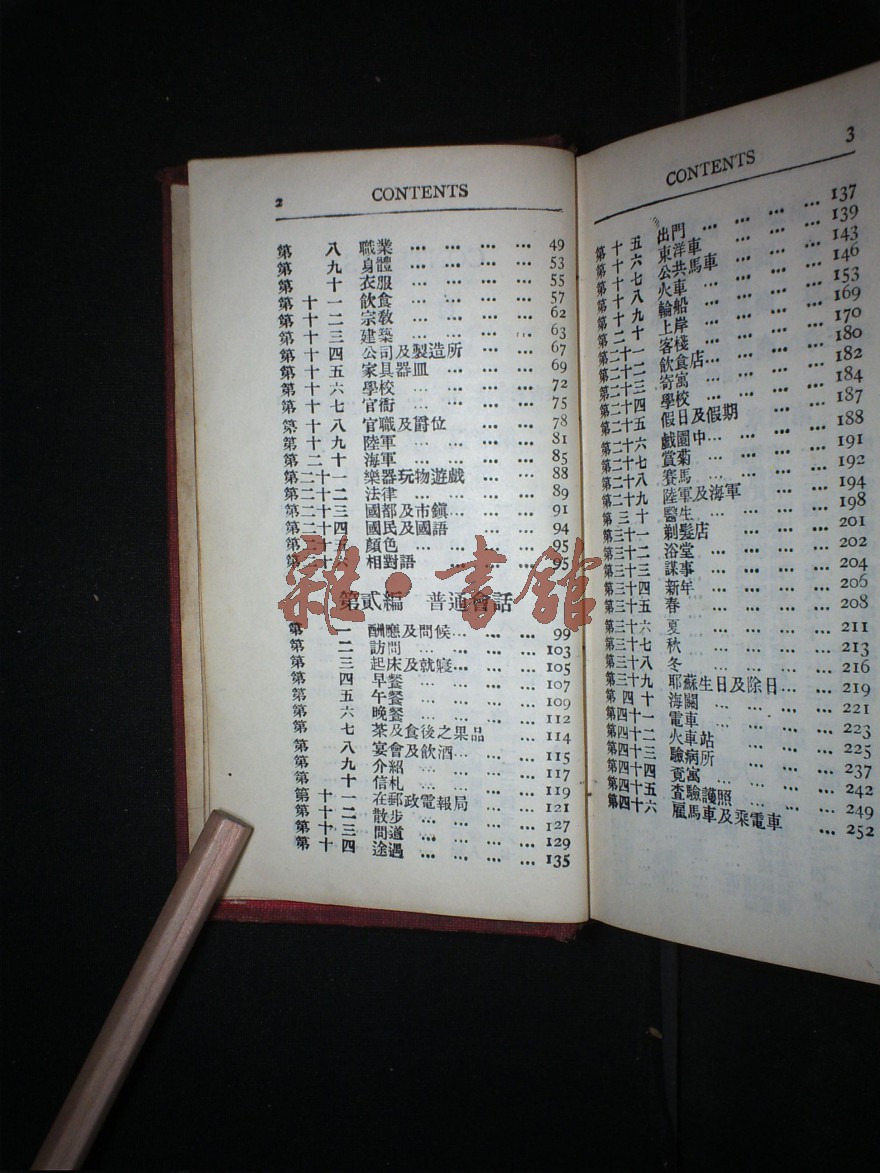 2 CONTENTS
第八 職業 ... ... ... ... 49
第九 身體 ... ... ... ... 53
第十 衣服 ... ... ... ... 55
第十一 飲食 ... ... ... ... 57
第十二 宗敎 ... ... ... ... 62
第十三 建築 ... ... ... ... 63
第十四 公司及製造所 ... ... 67
第十五 家具器皿 ... ... ... 69
第十六 學校 ... ... ... ... 72
第十七 官衙 ... ... ... ... 75
第十八 官職及爵位 ... ... 78
第十九 陸軍 ... ... ... ... 81
第二十 海軍 ... ... ... ... 85
第二十一 樂器玩物遊戲 ... ... 88
第二十二 法律 ... ... ... ... 89
第二十三 國都及市鎭... ... ... 91
第二十四 國民及國語 ... ... 94
第二十五 顏色 ... ... ... ... 95
第二十六 相對語 ... ... ... 95
雜·書館
第貳編 普通會話
第一 酬應及問候... ... ... 99
第二 訪問 ... ... ... ... 103
第三 起床及就寢... ... ... 105
第四 早餐 ... ... ... ... 107
第五 午餐 ... ... ... ... 109
第六 晚餐 ... ... ... ... 112
第七 茶及食後之果品 ... ... 114
第八 宴會及飲酒... ... ... 115
第九 介紹 ... ... ... ... 117
第十 信札 ... ... ... ... 119
第十一 在郵政電報局 ... ... 121
第十二 散步 ... ... ... ... 127
第十三 問道 ... ... ... ... 129
第十四 途遇 ... ... ... ... 135
CONTENTS 3
第十五 出門 ... ... ... ... 137
第十六 東洋車 ... ... ... 139
第十七 公共馬車 ... ... ... 143
第十八 火車 ... ... ... ... 146
第十九 輪船 ... ... ... ... 153
第二十 上岸 ... ... ... ... 169
第二十一 客棧 ... ... ... ... 170
第二十二 飲食店... ... ... ... 180
第二十三 寄寓 ... ... ... ... 182
第二十四 學校 ... ... ... ... 184
第二十五 假日及假期 ... ... 187
第二十六 戲園中... ... ... ... 188
第二十七 賞菊 ... ... ... ... 191
第二十八 賽馬 ... ... ... ... 192
第二十九 陸軍及海軍 ... ... 194
第三十 醫生 ... ... ... ... 198
第三十一 剃髮店 ... ... ... 201
第三十二 浴堂 ... ... ... ... 202
第三十三 謀事 ... ... ... ... 204
第三十四 新年 ... ... ... ... 206
第三十五 春 ... ... ... ... 208
第三十六 夏 ... ... ... ... 211
第三十七 秋 ... ... ... ... 213
第三十八 冬 ... ... ... ... 216
第三十九 耶蘇生日及除日... ... 219
第四十 海關 ... ... ... ... 221
第四十一 電車 ... ... ... ... 223
第四十二 火車站 ... ... ... 225
第四十三 驗病所 ... ... ... 237
第四十四 覓寓 ... ... ... ... 242
第四十五 查驗護照 ... ... ... 249
第四十六 雇馬車及乘電車 ... 252